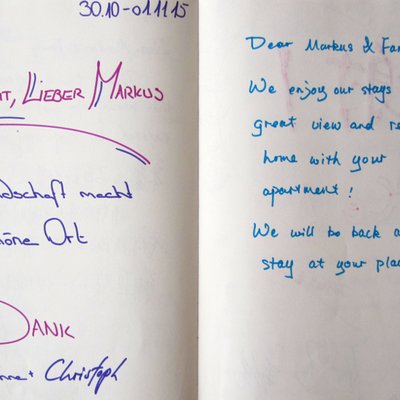 30.10-01.11.15
LIEBER MARKUS
macht
Ort
DANK
Christoph
Dear Markus &
We enjoy our stays
great view and
home with your
apartment!
We will be back
stay at your